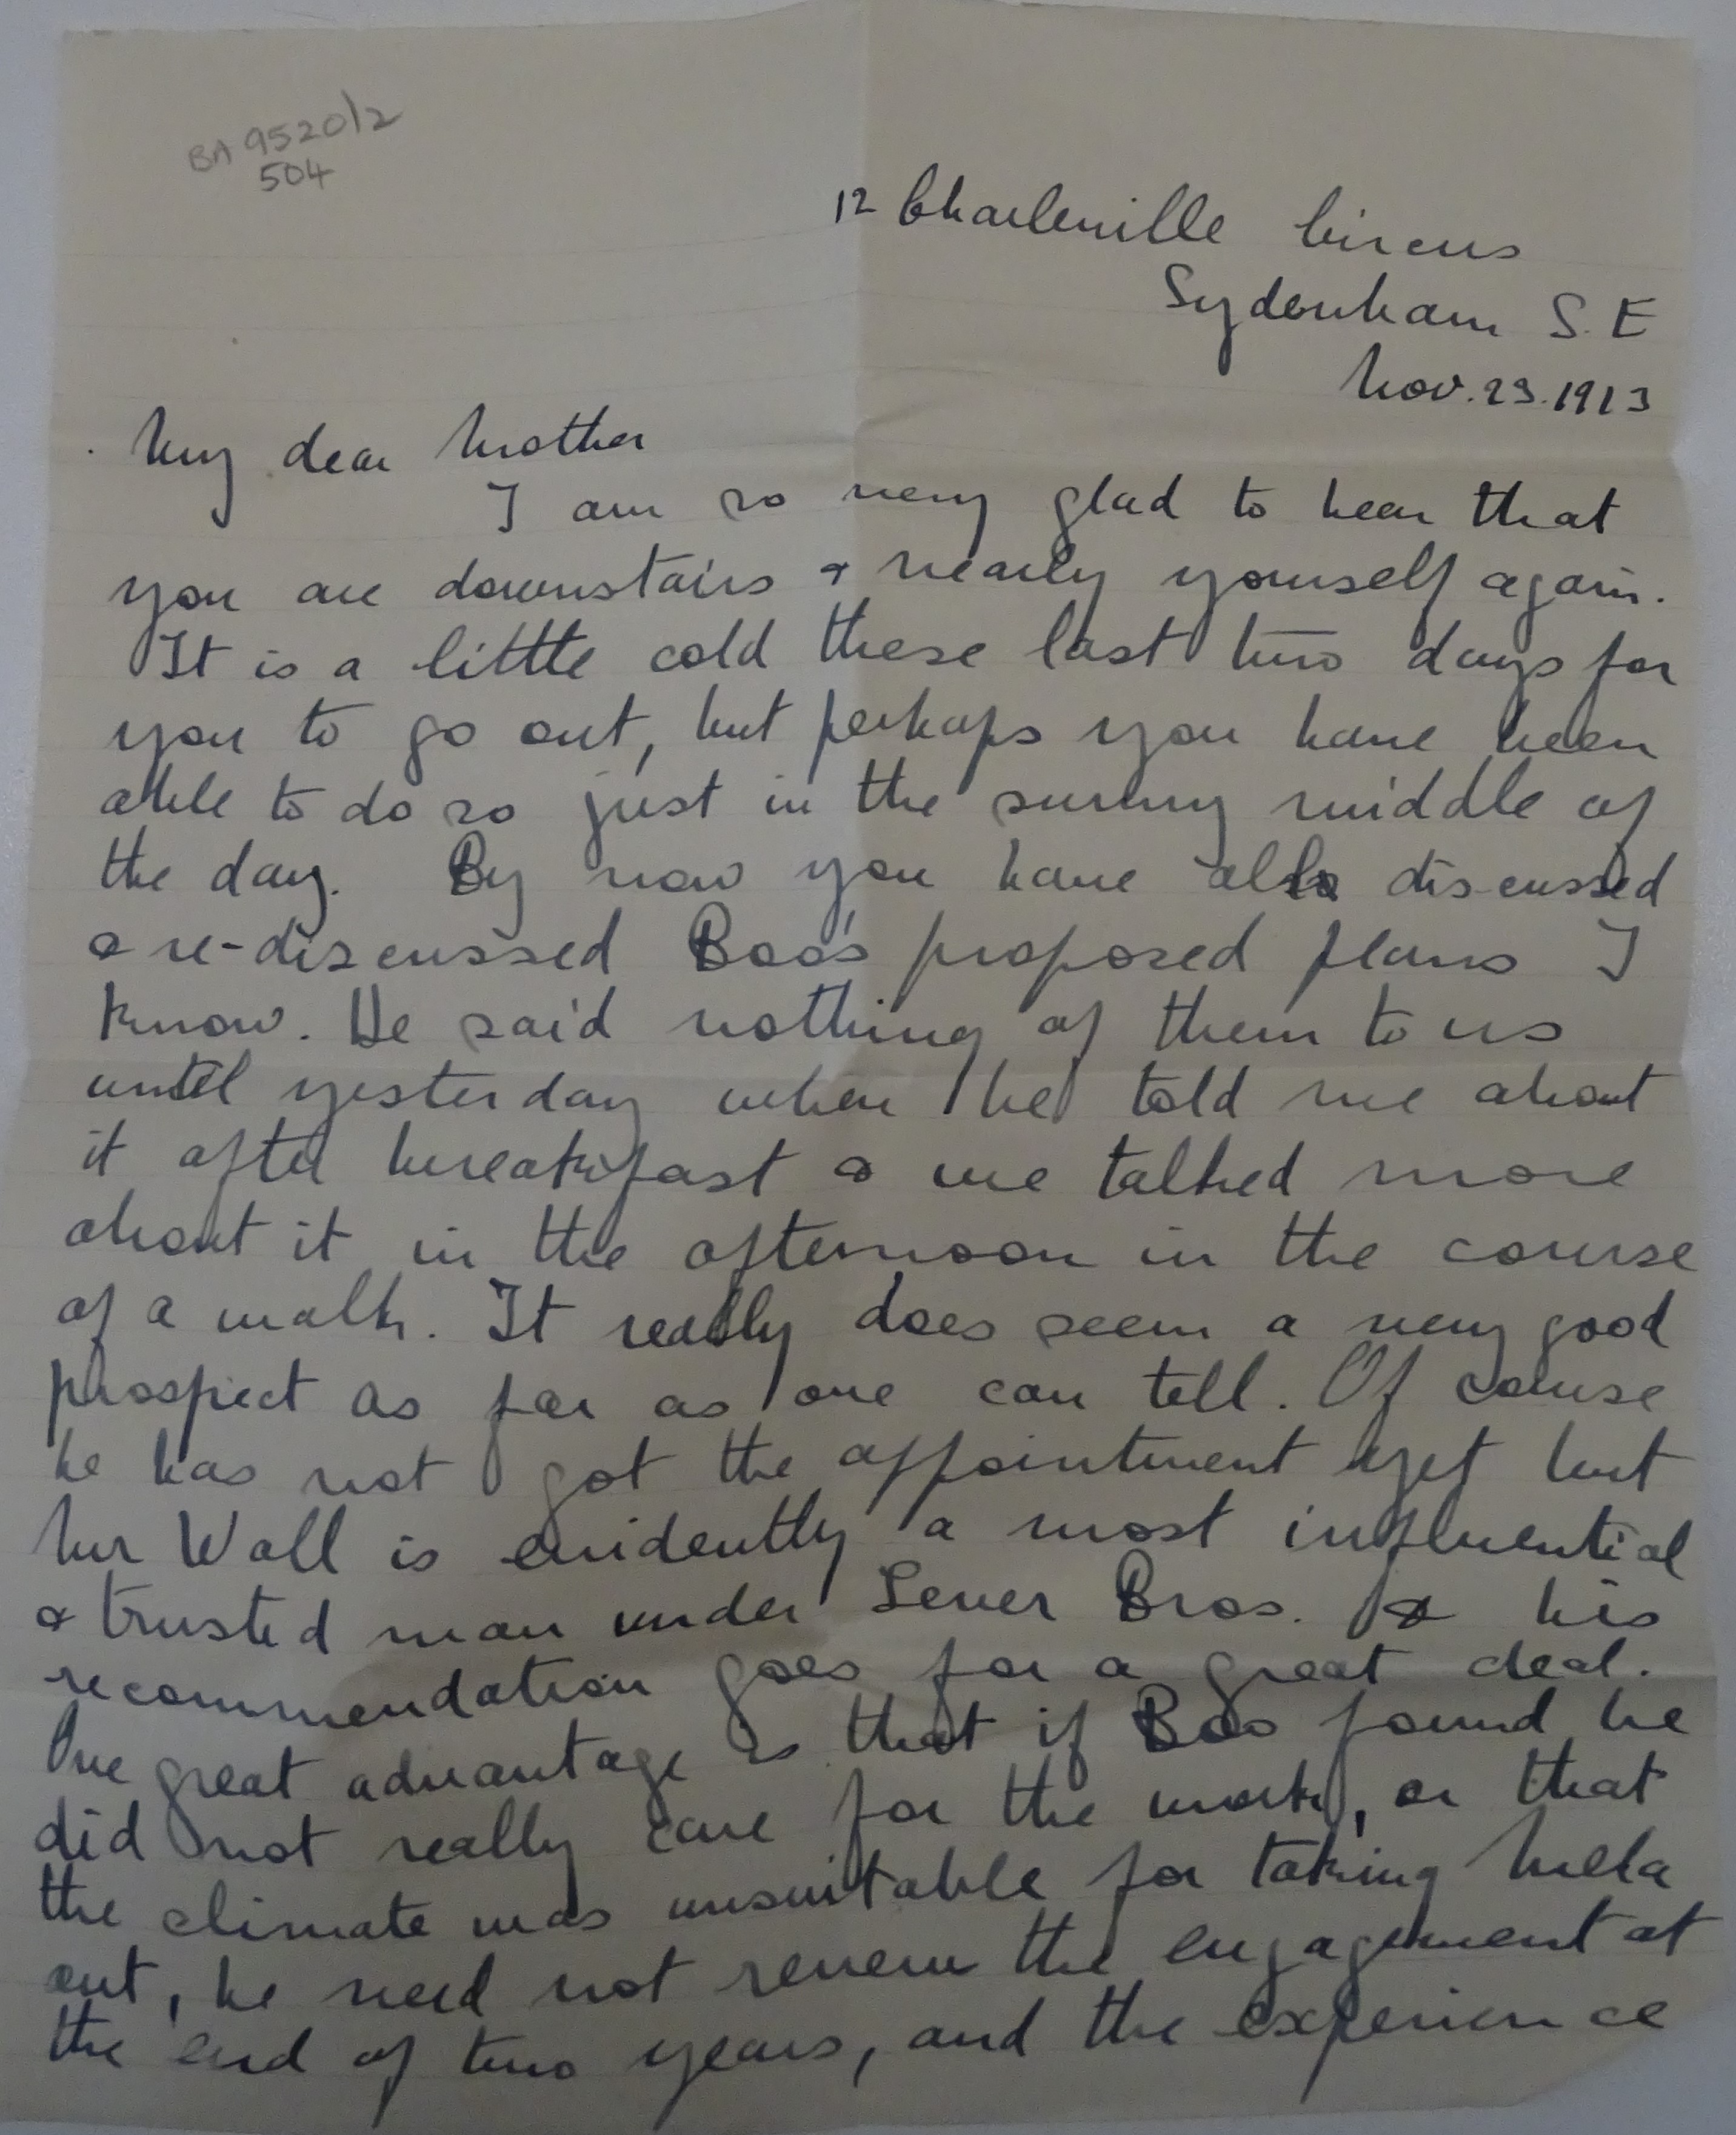 BA 9520/2
504
12 Charleville Circus
Sydenham S.E
Nov. 23. 1913
My dear Mother
I am so very glad to hear that
you are downstairs & nearly yourself again.
It is a little cold these last two days for
you to go out, but perhaps you have been
able to do so just in the sunny middle of
the day. By now you have also discussed
& re-discussed Boo's proposed plans I
know. He said nothing of them to us
until yesterday when he told me about
it after breakfast & we talked more
about it in the afternoon in the course
of a walk. It really does seem a very good
prospect as far as one can tell. Of course
he has not got the appointment yet but
Mr Wall is evidently a most influential
& trusted man under Lever Bros. & his
recommendation goes for a great deal.
One great advantage is that if Boo found he
did not really care for the work, or that
the climate was unsuitable for taking Mela
out, he need not renew the engagement at
the end of two years, and the experience